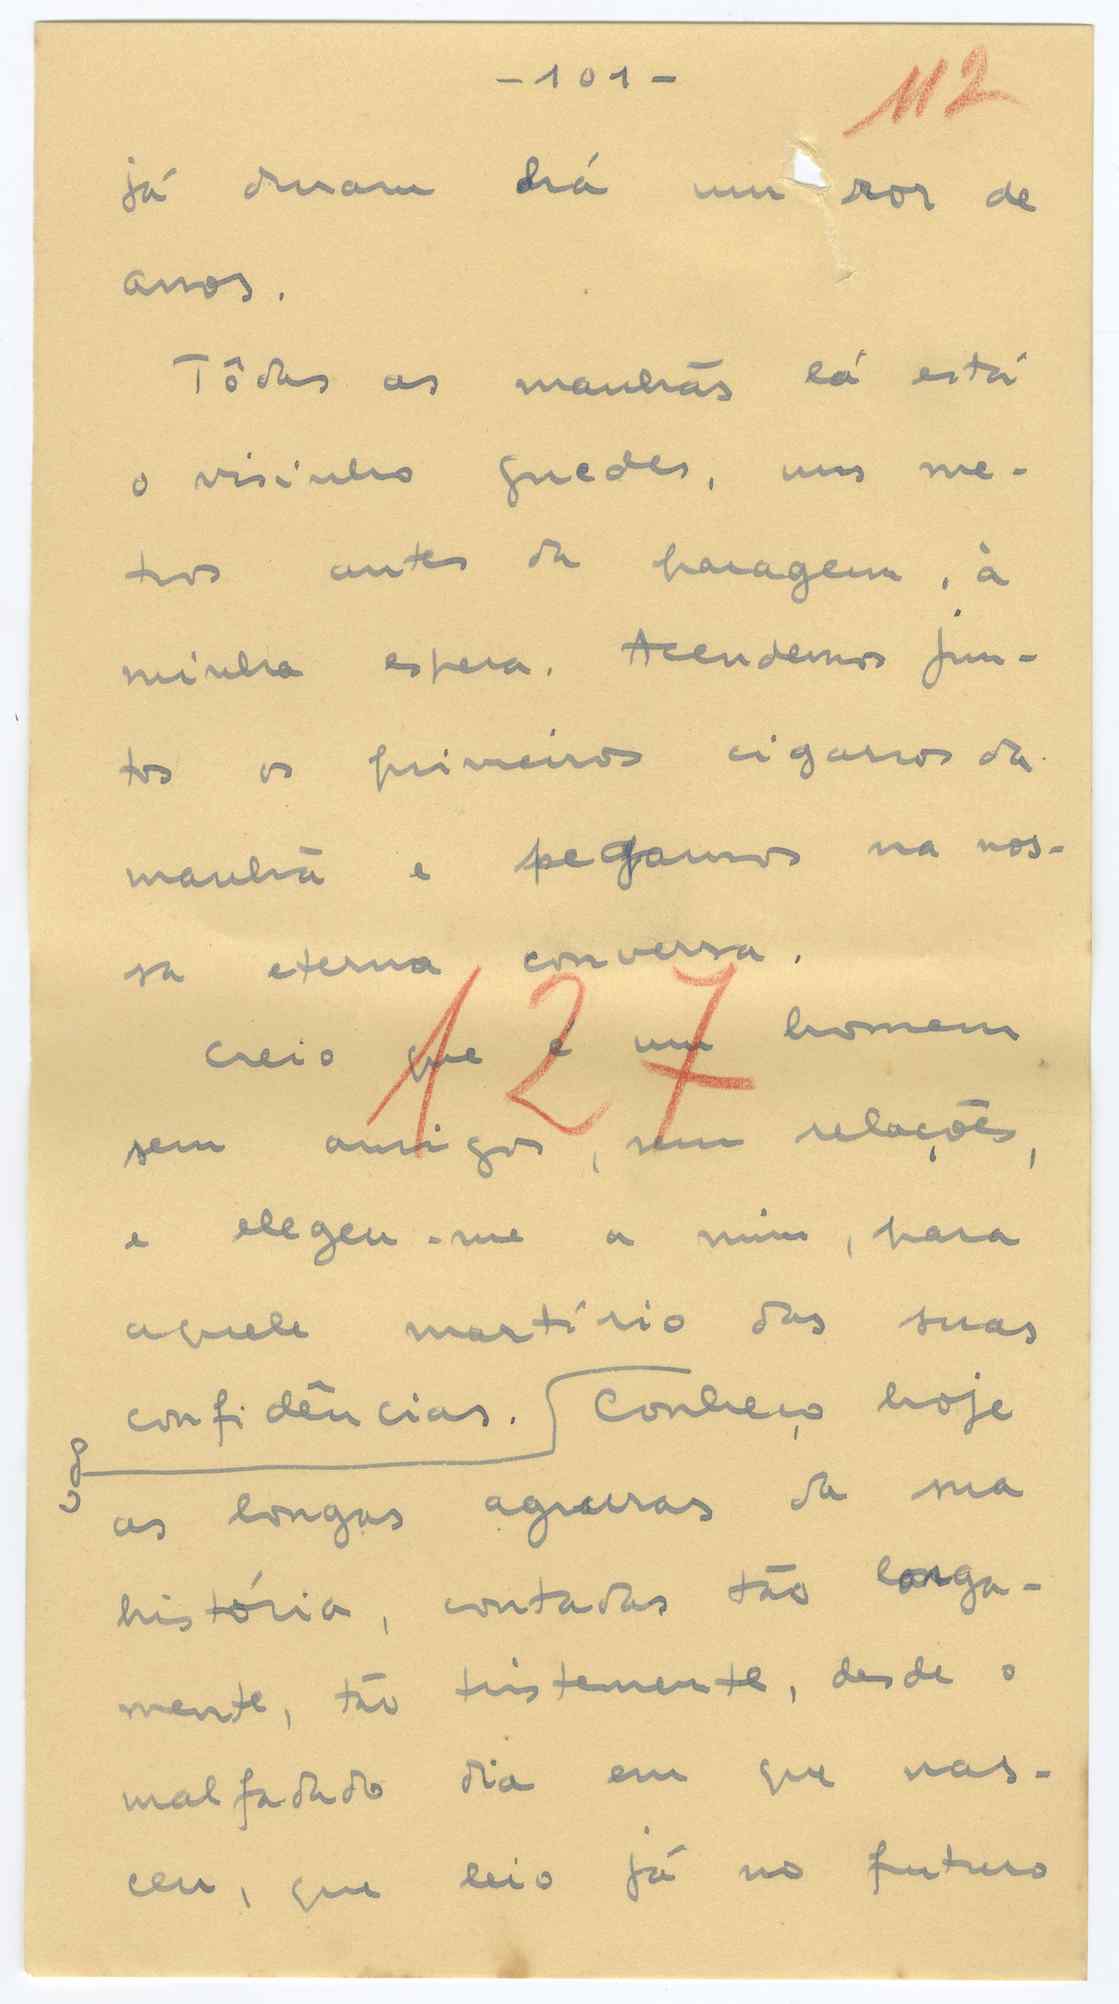 -101-
112
já duram há um ror de
anos.
Tôdas as manhãs lá está
o visinho Guedes, uns me-
tros antes da paragem, à
minha espera. Acendemos jun-
tos os primeiros cigarros da
manhã e pegamos na nos-
sa eterna conversa.
127
Creio que é um homem
sem amigos, sem relações,
e elegeu-me a mim, para
aquele martírio das suas
confidências. Conheço hoje
as longas agruras da sua
história, contadas tão longa-
mente, tão tristemente, desde o
malfadado dia em que nas-
ceu, que leio já no futuro